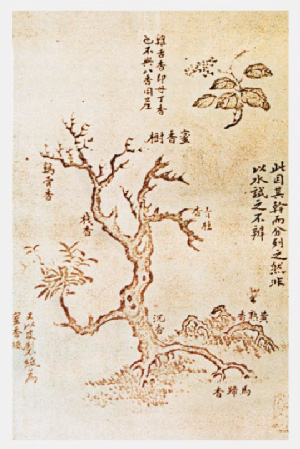 雞舌香卽母丁香
也不與八香同產
蜜香樹
此因其幹而分別之然非
以水試之不辨
青桂香
雞骨香
棧香
沉香
黃熟香
馬蹄香
蜜香紙